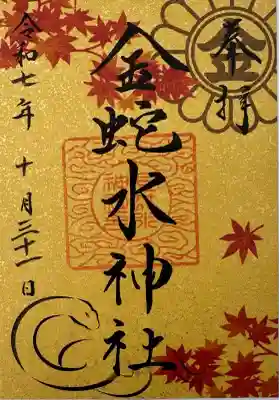 奉拝
金
金蛇水神社
令和七年十月三十一日